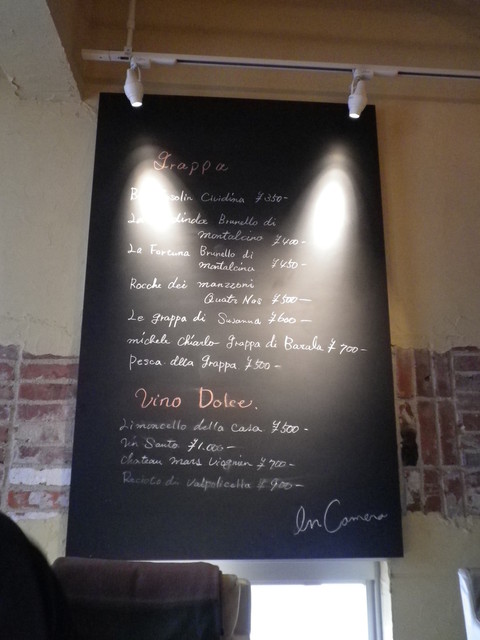 Grappa
Cividina ¥350-
Brunello di
montalcino ¥400-
La Fortuna Brunello di
montalcino ¥450-
Rocche dei manzoni
Quatr Nas ¥500-
Le grappa di Susanna ¥600-
michele chiarlo grappa di Barola ¥700-
Pesca della Grappa ¥500-
Vino Dolce.
Limoncello della casa ¥500-
Vin Santo ¥1.000-
Chateau mars Viognier ¥700-
Recioto di Valpolicella ¥900-
In Camera